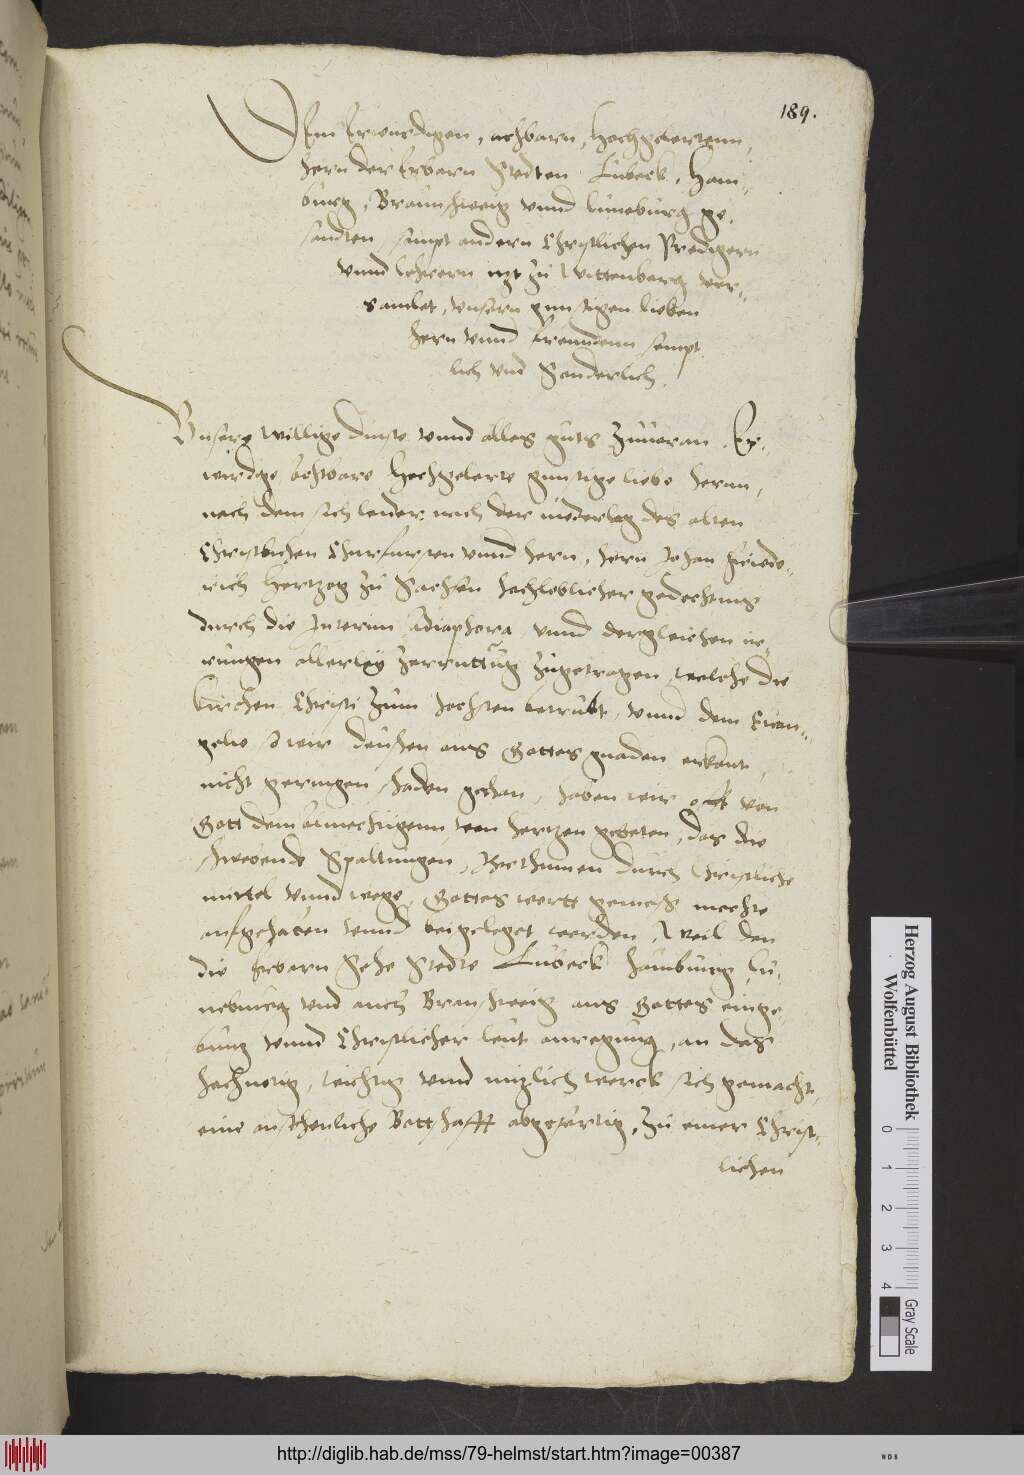 189.
Den Erwirdigen, achtbarn, Hochgelertenn,
hern der Erbarn Stedten Lubeck, Ham-
burg, Braunschweig vnnd Luneburg ge-
sandten, sampt andern Christlichen Predigern
vnnd lehrern itzt zu Wittenbarg ver-
samlet, vnsern gunstigen lieben
hern vnnd freundenn sempt
lich vnd Sonderlich.
Vnsere willige dinste vnnd alles guts zuuoran. Er-
wirdige achtbare Hochgelerte gunstige liebe hernn,
nach dem sich leider nach der niderlag des alten
Christlichen Churfursten vnnd hern, hern Johan Friede-
rich Hertzog zu Sachsen hochloblicher gedechtnus
durch die Interim Adiaphora vnnd dergleichen ir-
rungen allerley zerruttung zugetragen, welche die
kirchen Christi zum hochsten betrubt, vnnd dem Euan-
gelio wir deutzen aus Gottes gnaden erkant,
nicht geringen schaden gethan, haben wir offt von
Gott dem almechtigenn, von hertzen gebeten, das die
schwebende Spaltungen, durch Christliche
mittel vnnd wege, Gottes wortt gemess mochte
auffgehaben vnnd beigeleget werden, Weil den
die Erbarn Sehe Stedte Lubeck Hamburg Lu-
neburg vnd auch Braunschweig aus Gottes einge-
bung vnnd Christlicher leut anregung, an das
hochnotig, wichtig vnnd nutzlich werck sich gemacht,
eine ansehenliche Bottschafft abgefertig, zu einer Christ-
lichen
Herzog August Bibliothek
Wolfenbüttel
0 1 2 3 4
Gray Scale
http://diglib.hab.de/mss/79-helmst/start.htm?image=00387